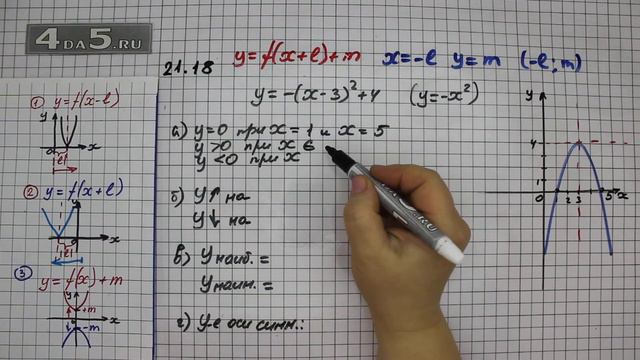 4DA5.RU
21.18 y=f(x+l)+m x=-l y=m (-l;m)
y=-(x-3)²+4 (y=-x²)
а) y=0 при x=1 и x=5
y>0 при x ∈
y<0 при x
б) y↑ на
y↓ на
в) y наиб. =
y наим. =
г) у-е оси симм.:
① y=f(x-l)
0 x
l
② y=f(x+l)
0 x
l
③ y=f(x)+m
y
+m
x
-m
y
4
0 1 2 3 5 x